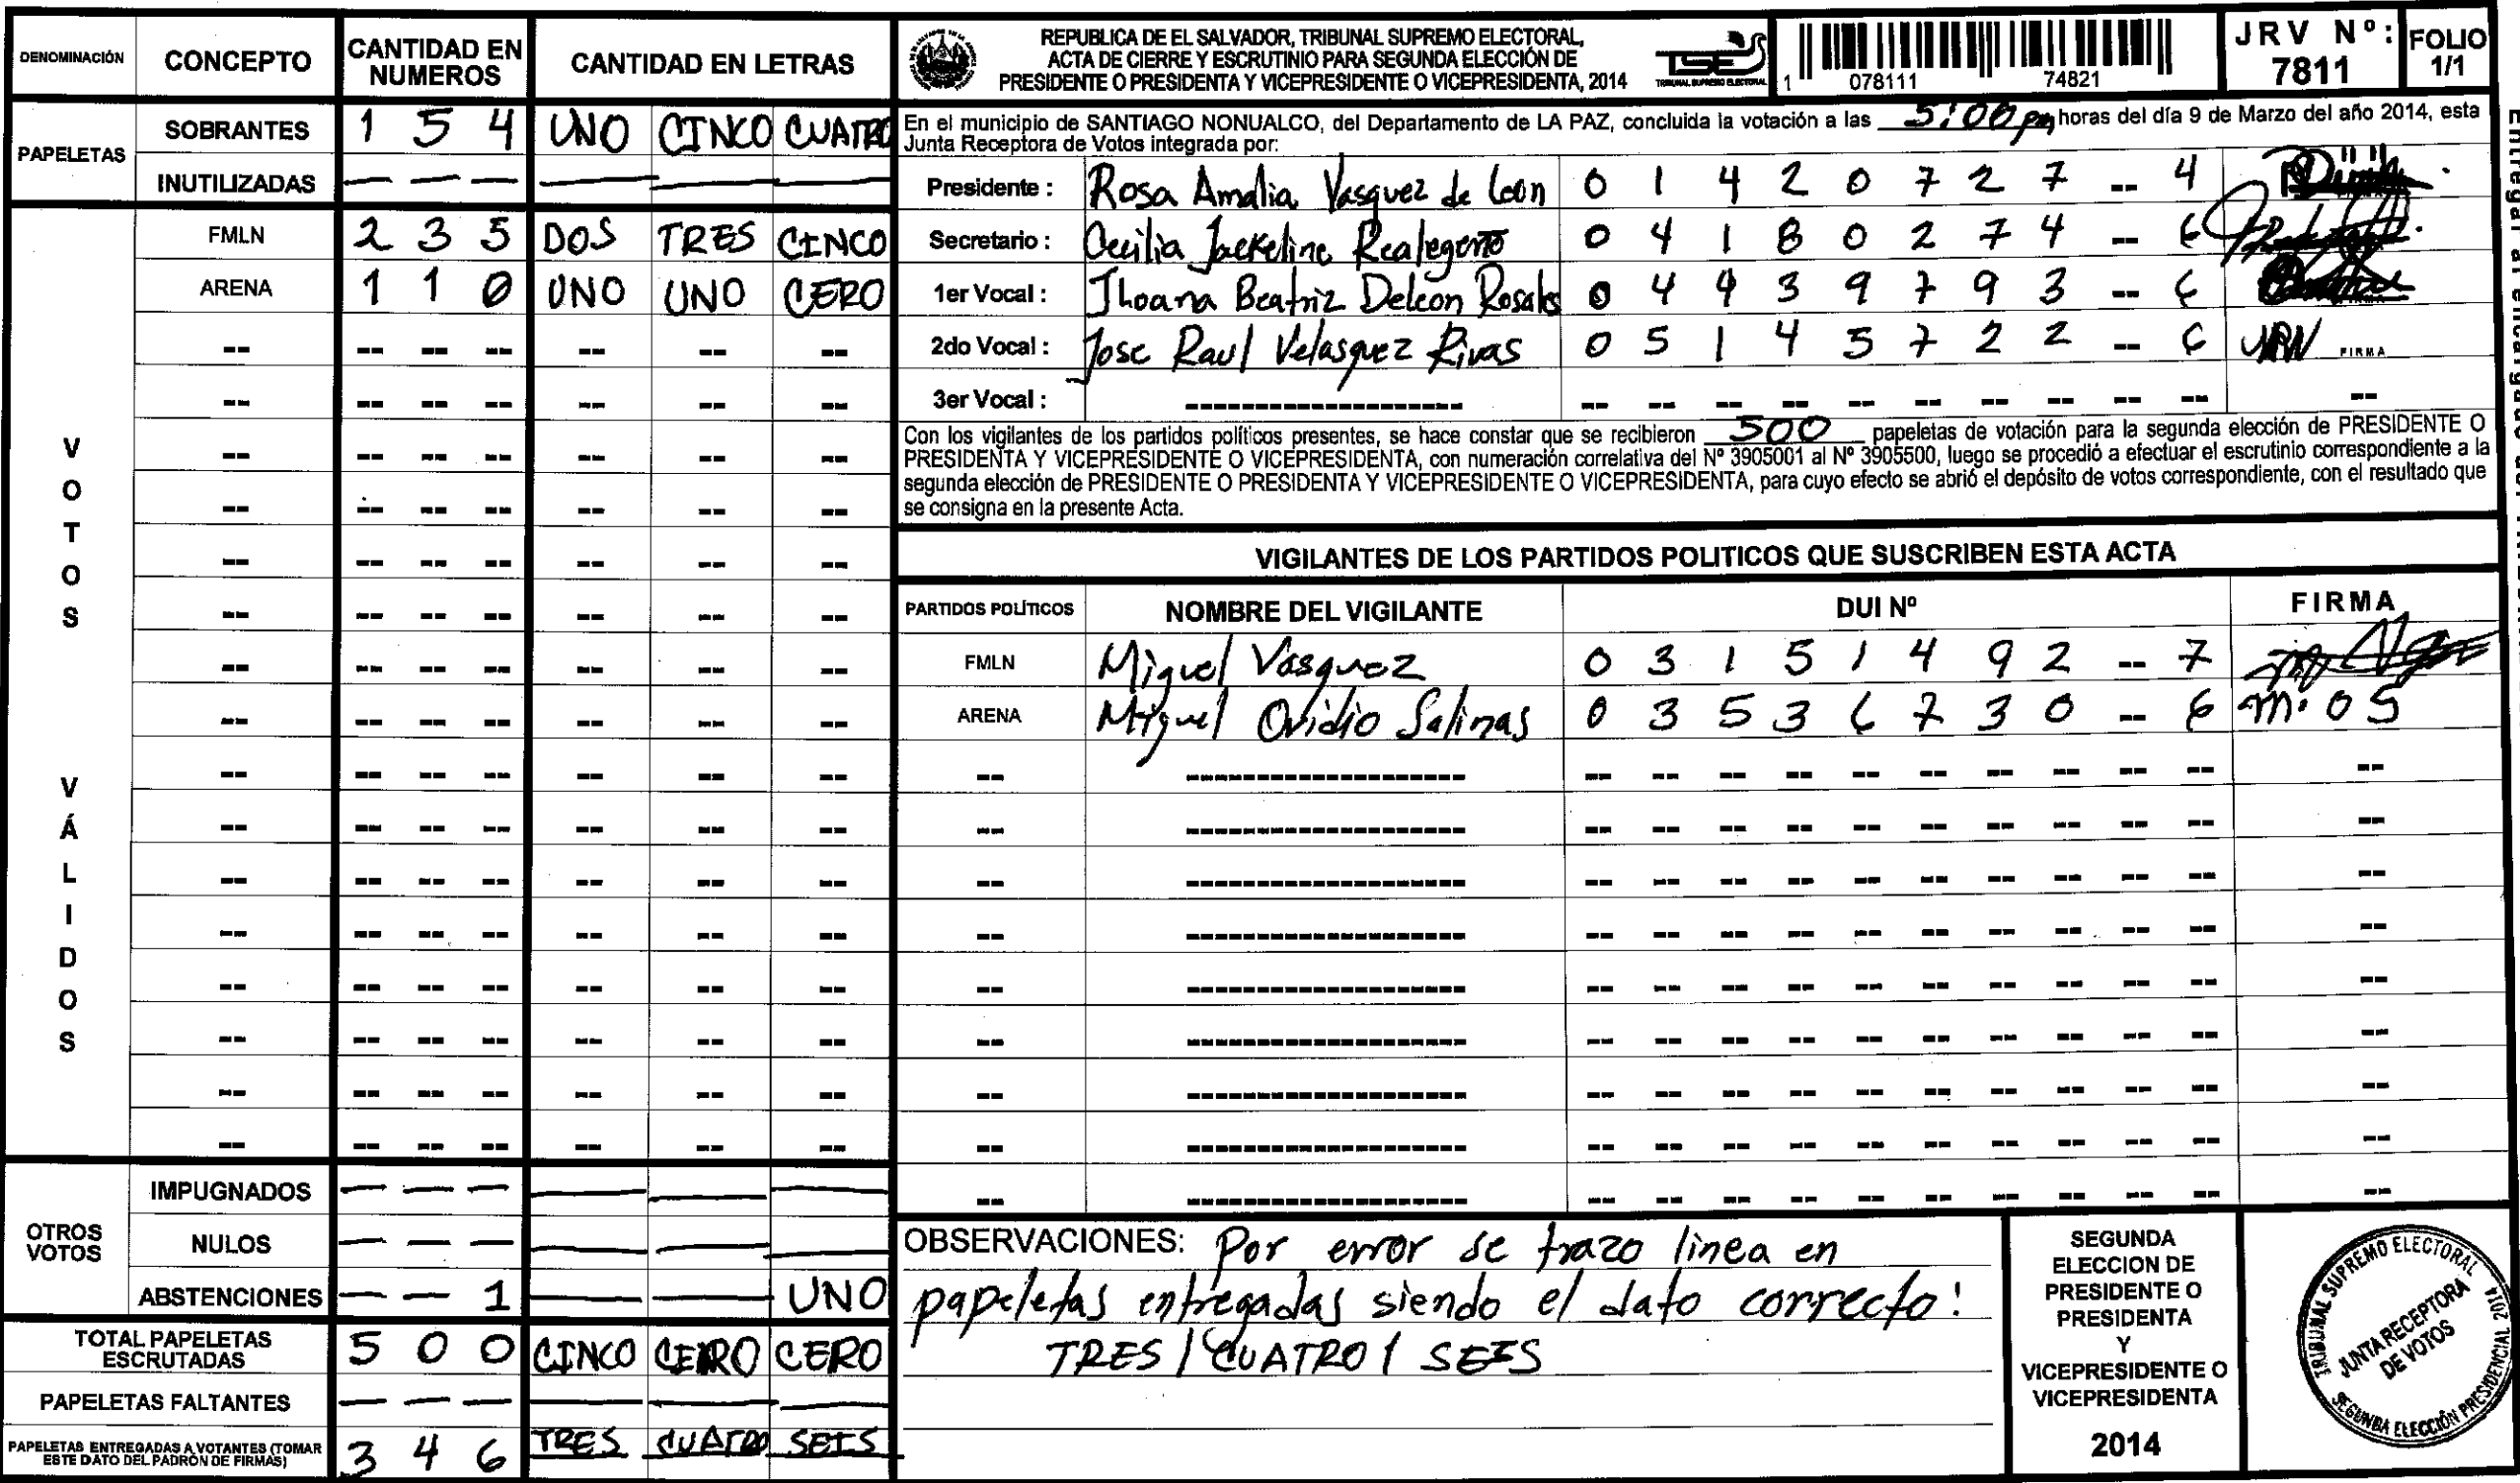 DENOMINACIÓN CONCEPTO CANTIDAD EN NUMEROS CANTIDAD EN LETRAS
PAPELETAS
SOBRANTES 1 5 4 UNO CINCO CUATRO
INUTILIZADAS — — — — — —
VOTOS VÁLIDOS
FMLN 2 3 5 DOS TRES CINCO
ARENA 1 1 0 UNO UNO CERO
OTROS VOTOS
IMPUGNADOS — — — — — —
NULOS — — — — — —
ABSTENCIONES — — 1 — — UNO
TOTAL PAPELETAS ESCRUTADAS 5 0 0 CINCO CERO CERO
PAPELETAS FALTANTES — — — — — —
PAPELETAS ENTREGADAS A VOTANTES (TOMAR ESTE DATO DEL PADRÓN DE FIRMAS) 3 4 6 TRES CUATRO SEIS
REPUBLICA DE EL SALVADOR, TRIBUNAL SUPREMO ELECTORAL,
ACTA DE CIERRE Y ESCRUTINIO PARA SEGUNDA ELECCIÓN DE
PRESIDENTE O PRESIDENTA Y VICEPRESIDENTE O VICEPRESIDENTA, 2014
TSE
TRIBUNAL SUPREMO ELECTORAL
1 078111 74821
JRV Nº: 7811
FOLIO 1/1
En el municipio de SANTIAGO NONUALCO, del Departamento de LA PAZ, concluida la votación a las 5:00 pm horas del día 9 de Marzo del año 2014, esta
Junta Receptora de Votos integrada por:
Presidente : Rosa Amalia Vasquez de Leon 0 1 4 2 0 7 2 7 -- 4
Secretario : Cecilia Jackeline Realegeño 0 4 1 8 0 2 7 4 -- 6
1er Vocal : Jhoana Beatriz Deleon Rosales 0 4 4 3 9 7 9 3 -- 6
2do Vocal : Jose Raul Velasquez Rivas 0 5 1 4 5 7 2 2 -- 6 JRV FIRMA
3er Vocal :
Con los vigilantes de los partidos políticos presentes, se hace constar que se recibieron 500 papeletas de votación para la segunda elección de PRESIDENTE O
PRESIDENTA Y VICEPRESIDENTE O VICEPRESIDENTA, con numeración correlativa del Nº 3905001 al Nº 3905500, luego se procedió a efectuar el escrutinio correspondiente a la
segunda elección de PRESIDENTE O PRESIDENTA Y VICEPRESIDENTE O VICEPRESIDENTA, para cuyo efecto se abrió el depósito de votos correspondiente, con el resultado que
se consigna en la presente Acta.
VIGILANTES DE LOS PARTIDOS POLITICOS QUE SUSCRIBEN ESTA ACTA
PARTIDOS POLÍTICOS NOMBRE DEL VIGILANTE DUI Nº FIRMA
FMLN Miguel Vasquez 0 3 1 5 1 4 9 2 -- 7
ARENA Miguel Ovidio Salinas 0 3 5 3 6 7 3 0 -- 6 M.OS
OBSERVACIONES: Por error se trazo linea en
papeletas entregadas siendo el dato correcto:
TRES / CUATRO / SEIS
SEGUNDA
ELECCION DE
PRESIDENTE O
PRESIDENTA
Y
VICEPRESIDENTE O
VICEPRESIDENTA
2014
TRIBUNAL SUPREMO ELECTORAL
JUNTA RECEPTORA
DE VOTOS
SEGUNDA ELECCIÓN PRESIDENCIAL 2014